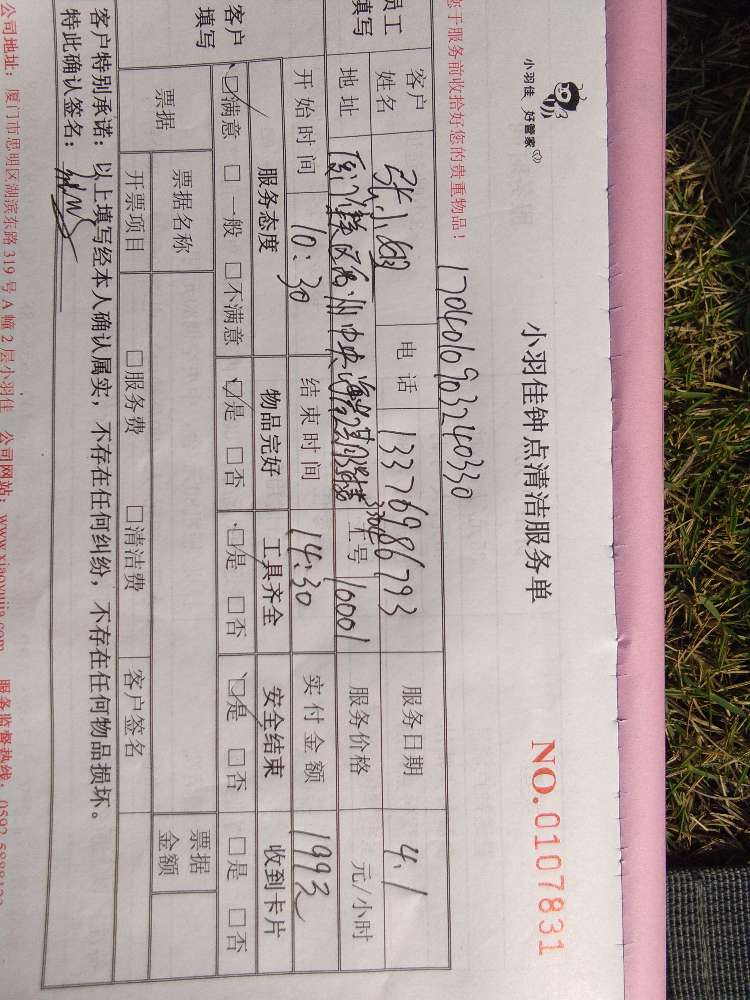 小羽佳 好管家
小羽佳钟点清洁服务单
NO.0107831
您于服务前收拾好您的贵重物品！
1704010903240330
员工填写
客户姓名 张小姐 电话 13376986793 服务日期 4.1
地址 中央海岸 工号 10001 服务价格 元/小时
开始时间 10:30 结束时间 14:30 实付金额 199元
客户填写
服务态度 物品完好 工具齐全 安全结束 收到卡片
☑满意 □一般 □不满意 ☑是 □否 ☑是 □否 ☑是 □否 □是 □否
票据 票据名称 票据金额
开票项目 □服务费 □清洁费 客户签名
客户特别承诺：以上填写经本人确认属实，不存在任何纠纷，不存在任何物品损坏。
特此确认签名：
公司地址：厦门市思明区湖滨东路319号A幢2层小羽佳 公司网站：www.xiaoyujia.com 服务监督热线：0592-5888